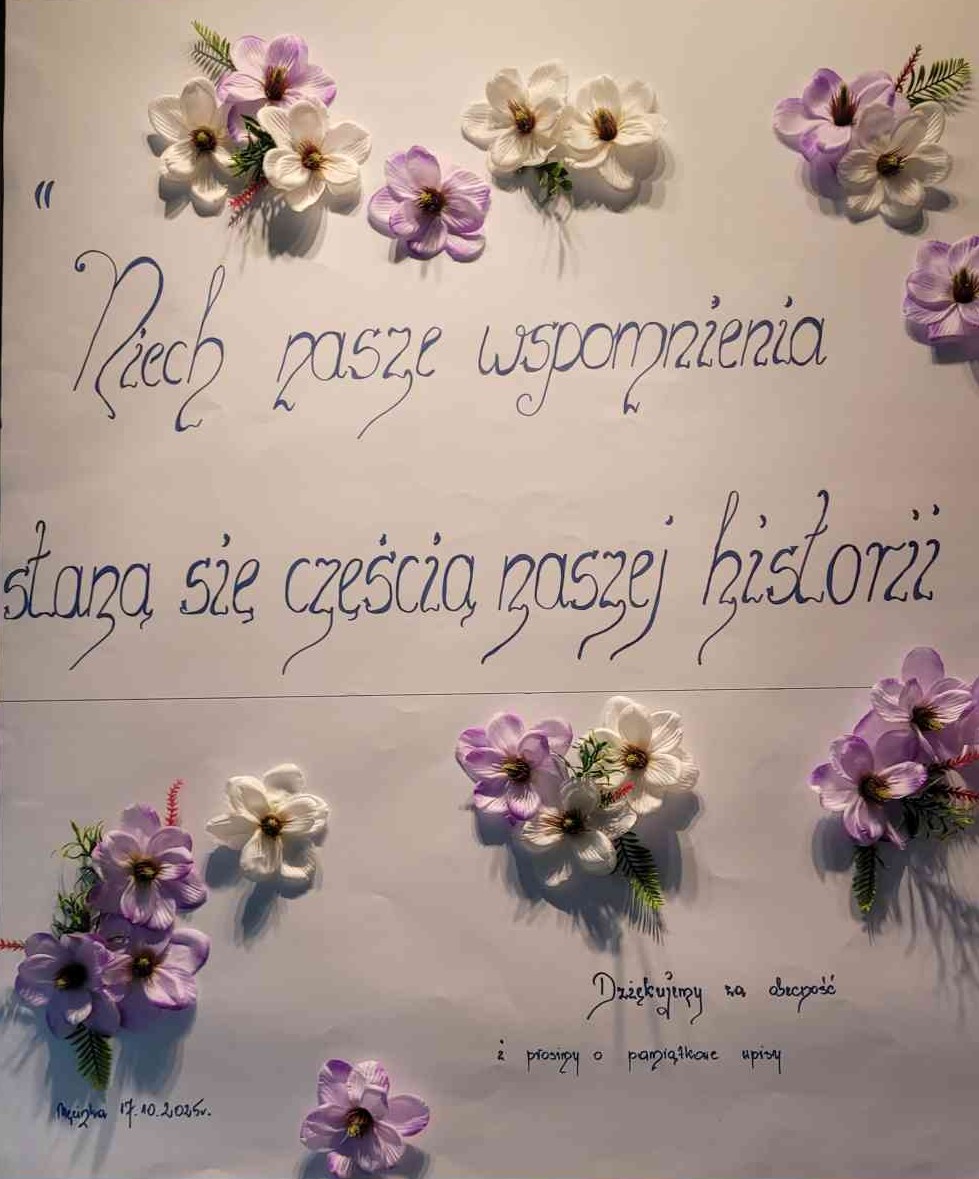 "
Niech nasze wspomnienia
staną się częścią naszej historii
Dziękujemy za obecność
i prosimy o pamiątkowe wpisy
Męcinka 17.10.2025r.